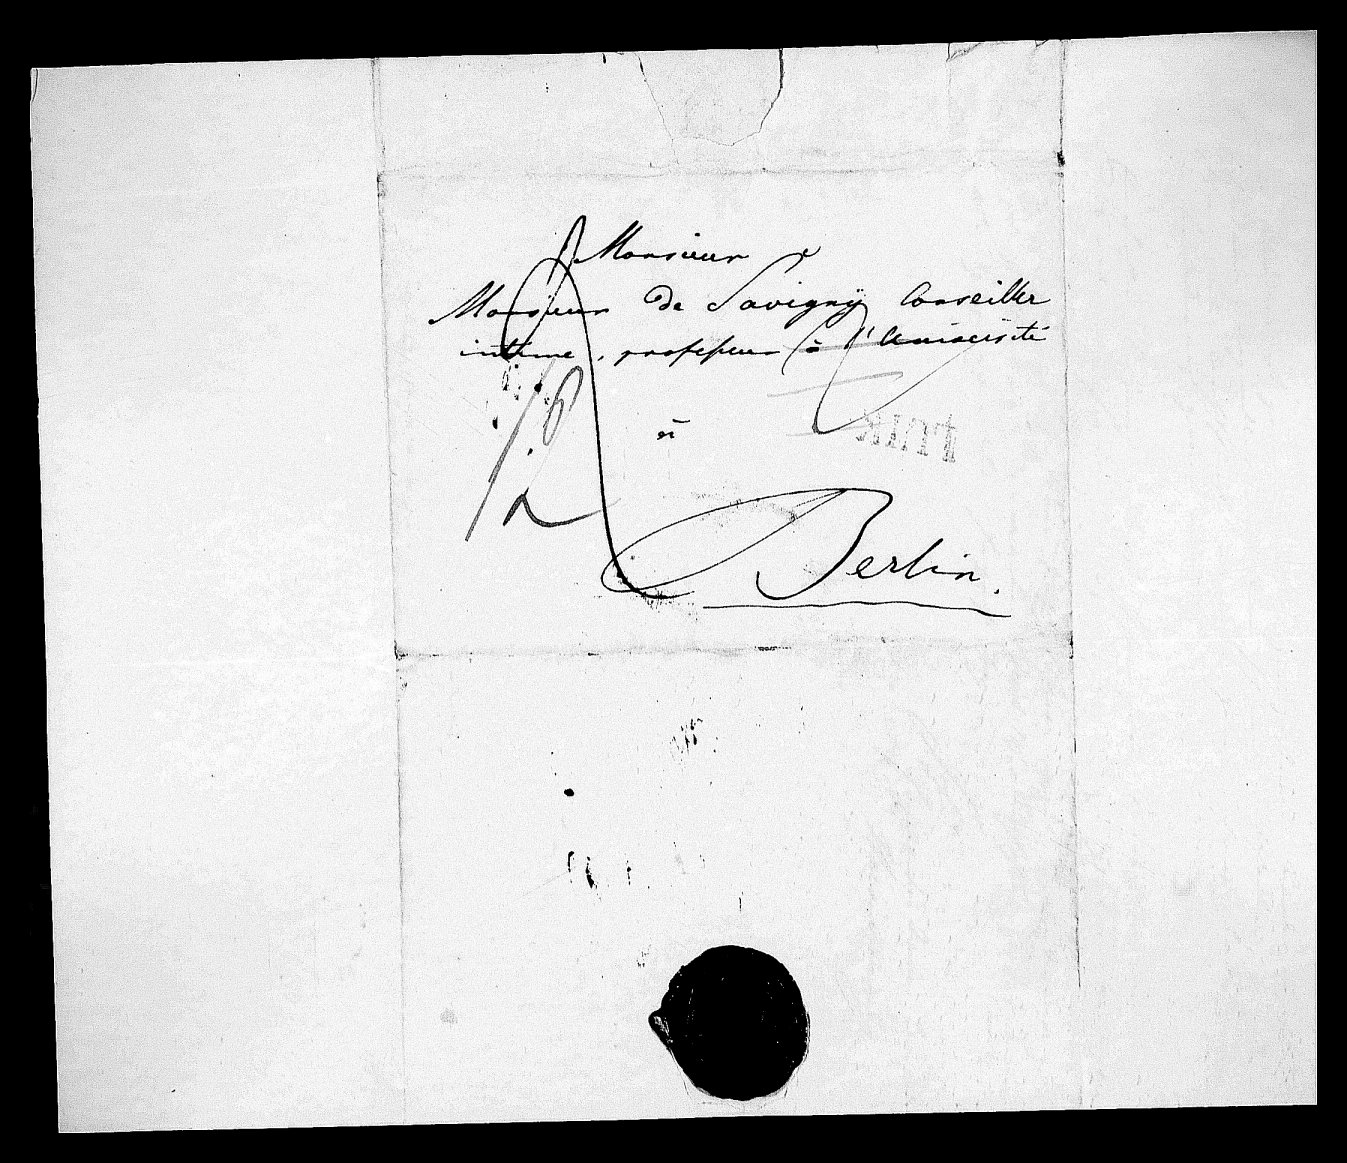 Monsieur
Monsieur de Savigny Conseiller
intime, professeur à l'Université
à
Berlin.